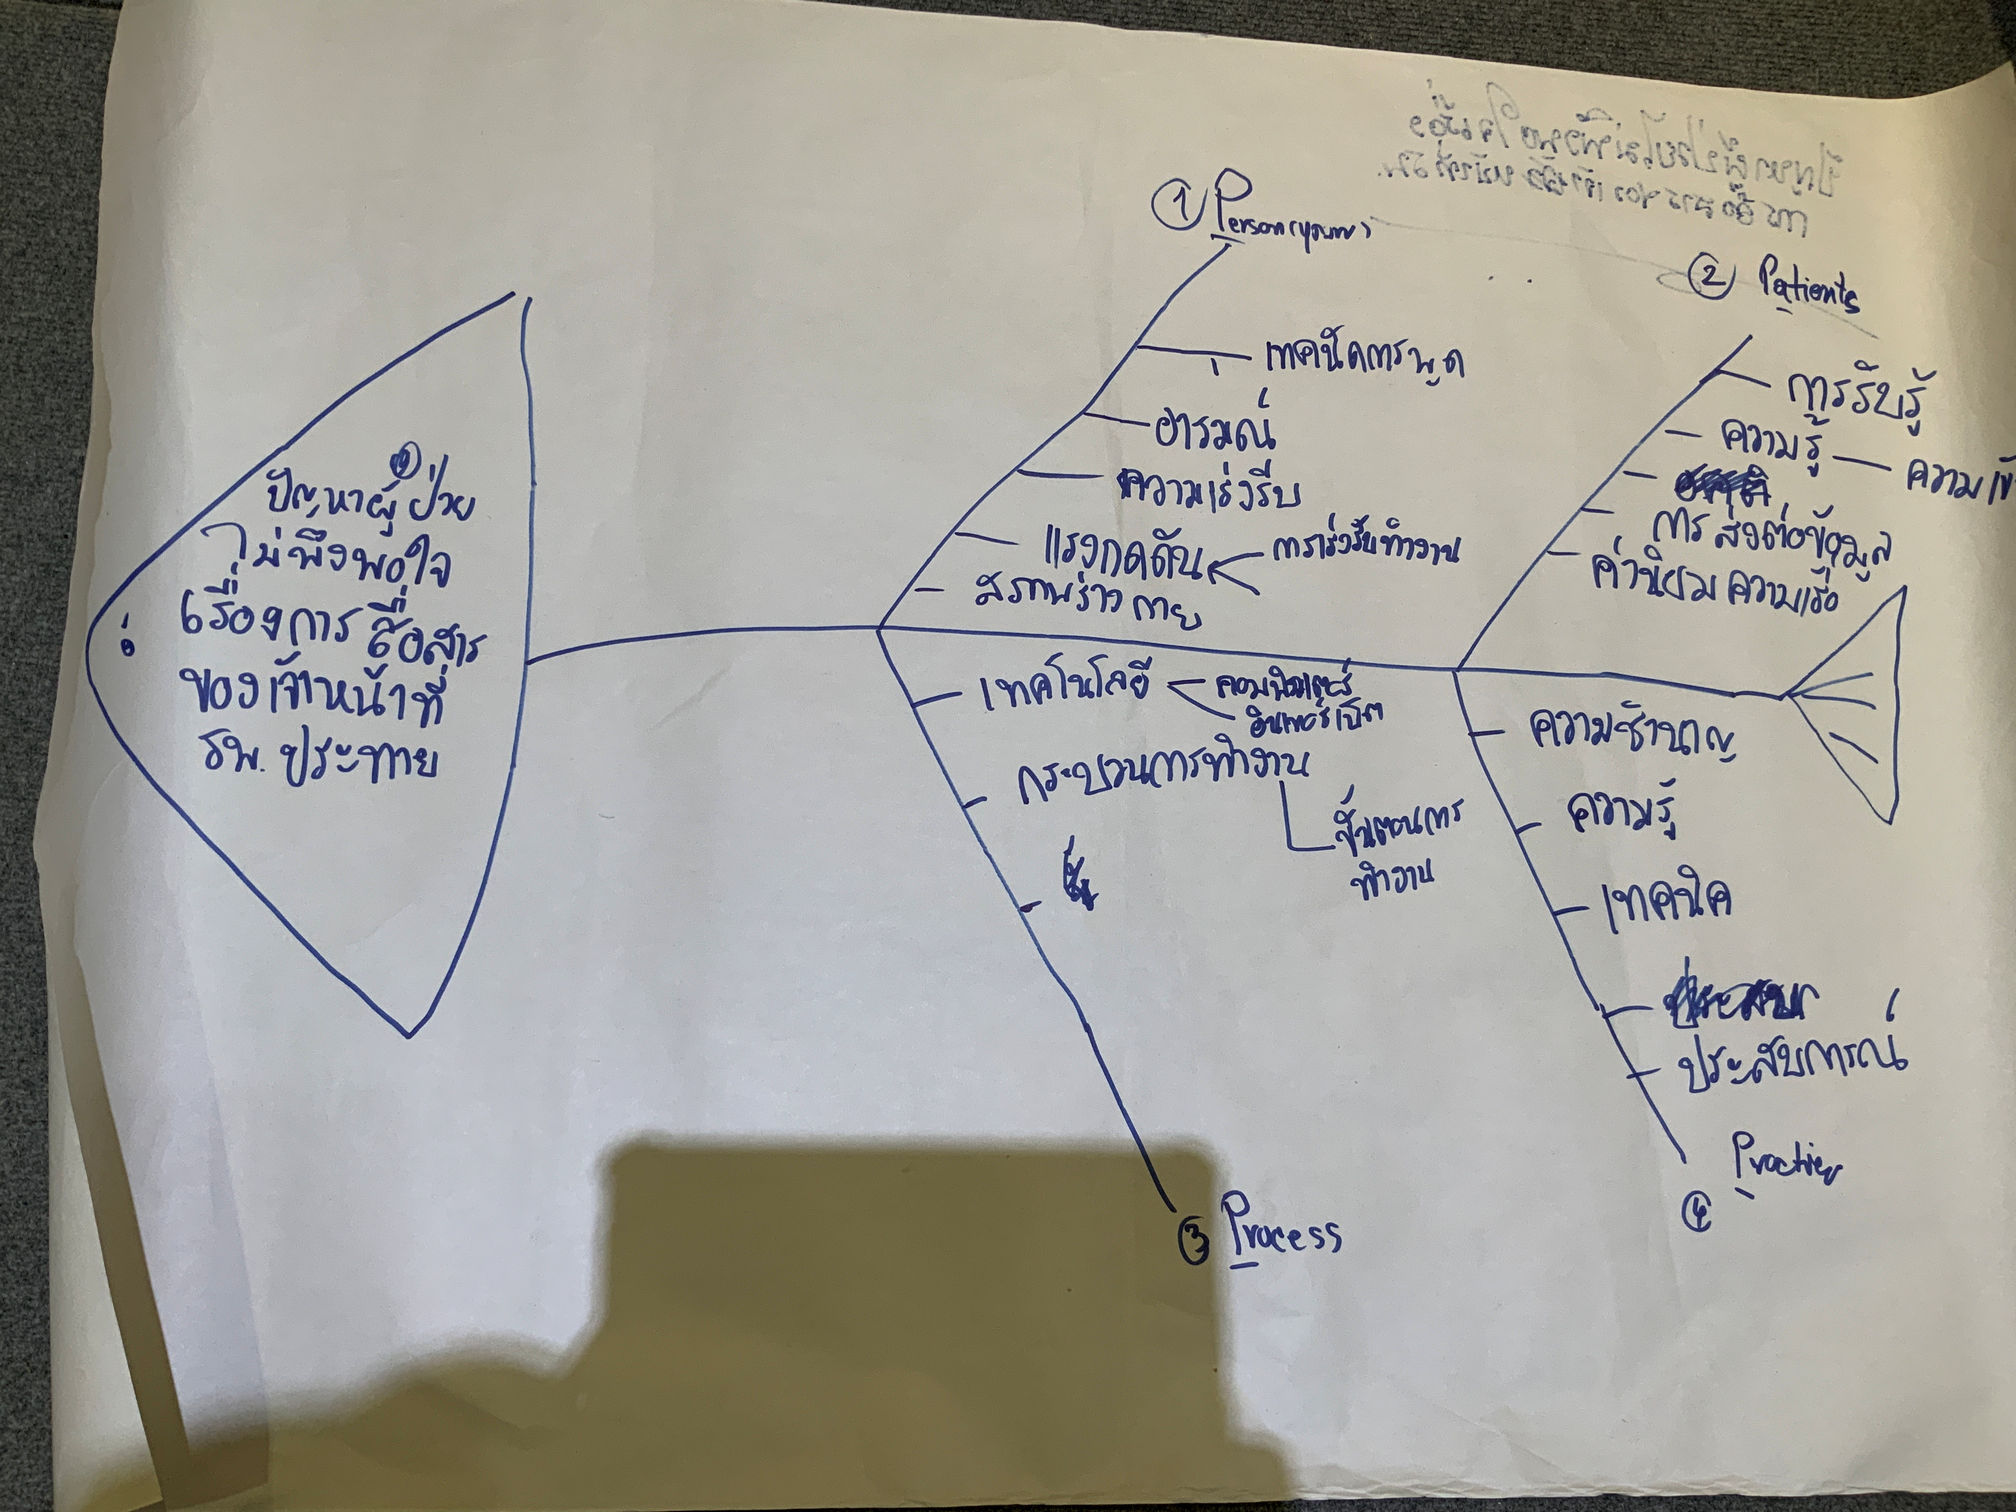 ปัญหาผู้ป่วย
ไม่พึงพอใจ
เรื่องการสื่อสาร
ของเจ้าหน้าที่
รพ. ประทาย
① Person
เทคนิคการพูด
อารมณ์
ความเร่งรีบ
แรงกดดัน การเร่งรีบทำงาน
สภาพร่างกาย
② Patients
การรับรู้
ความรู้
การส่งต่อข้อมูล
ค่านิยม ความเชื่อ
เทคโนโลยี คอมพิวเตอร์
อินเทอร์เน็ต
กระบวนการทำงาน
ขั้นตอนการ
ทำงาน
③ Process
ความชำนาญ
ความรู้
เทคนิค
ประสบการณ์
④